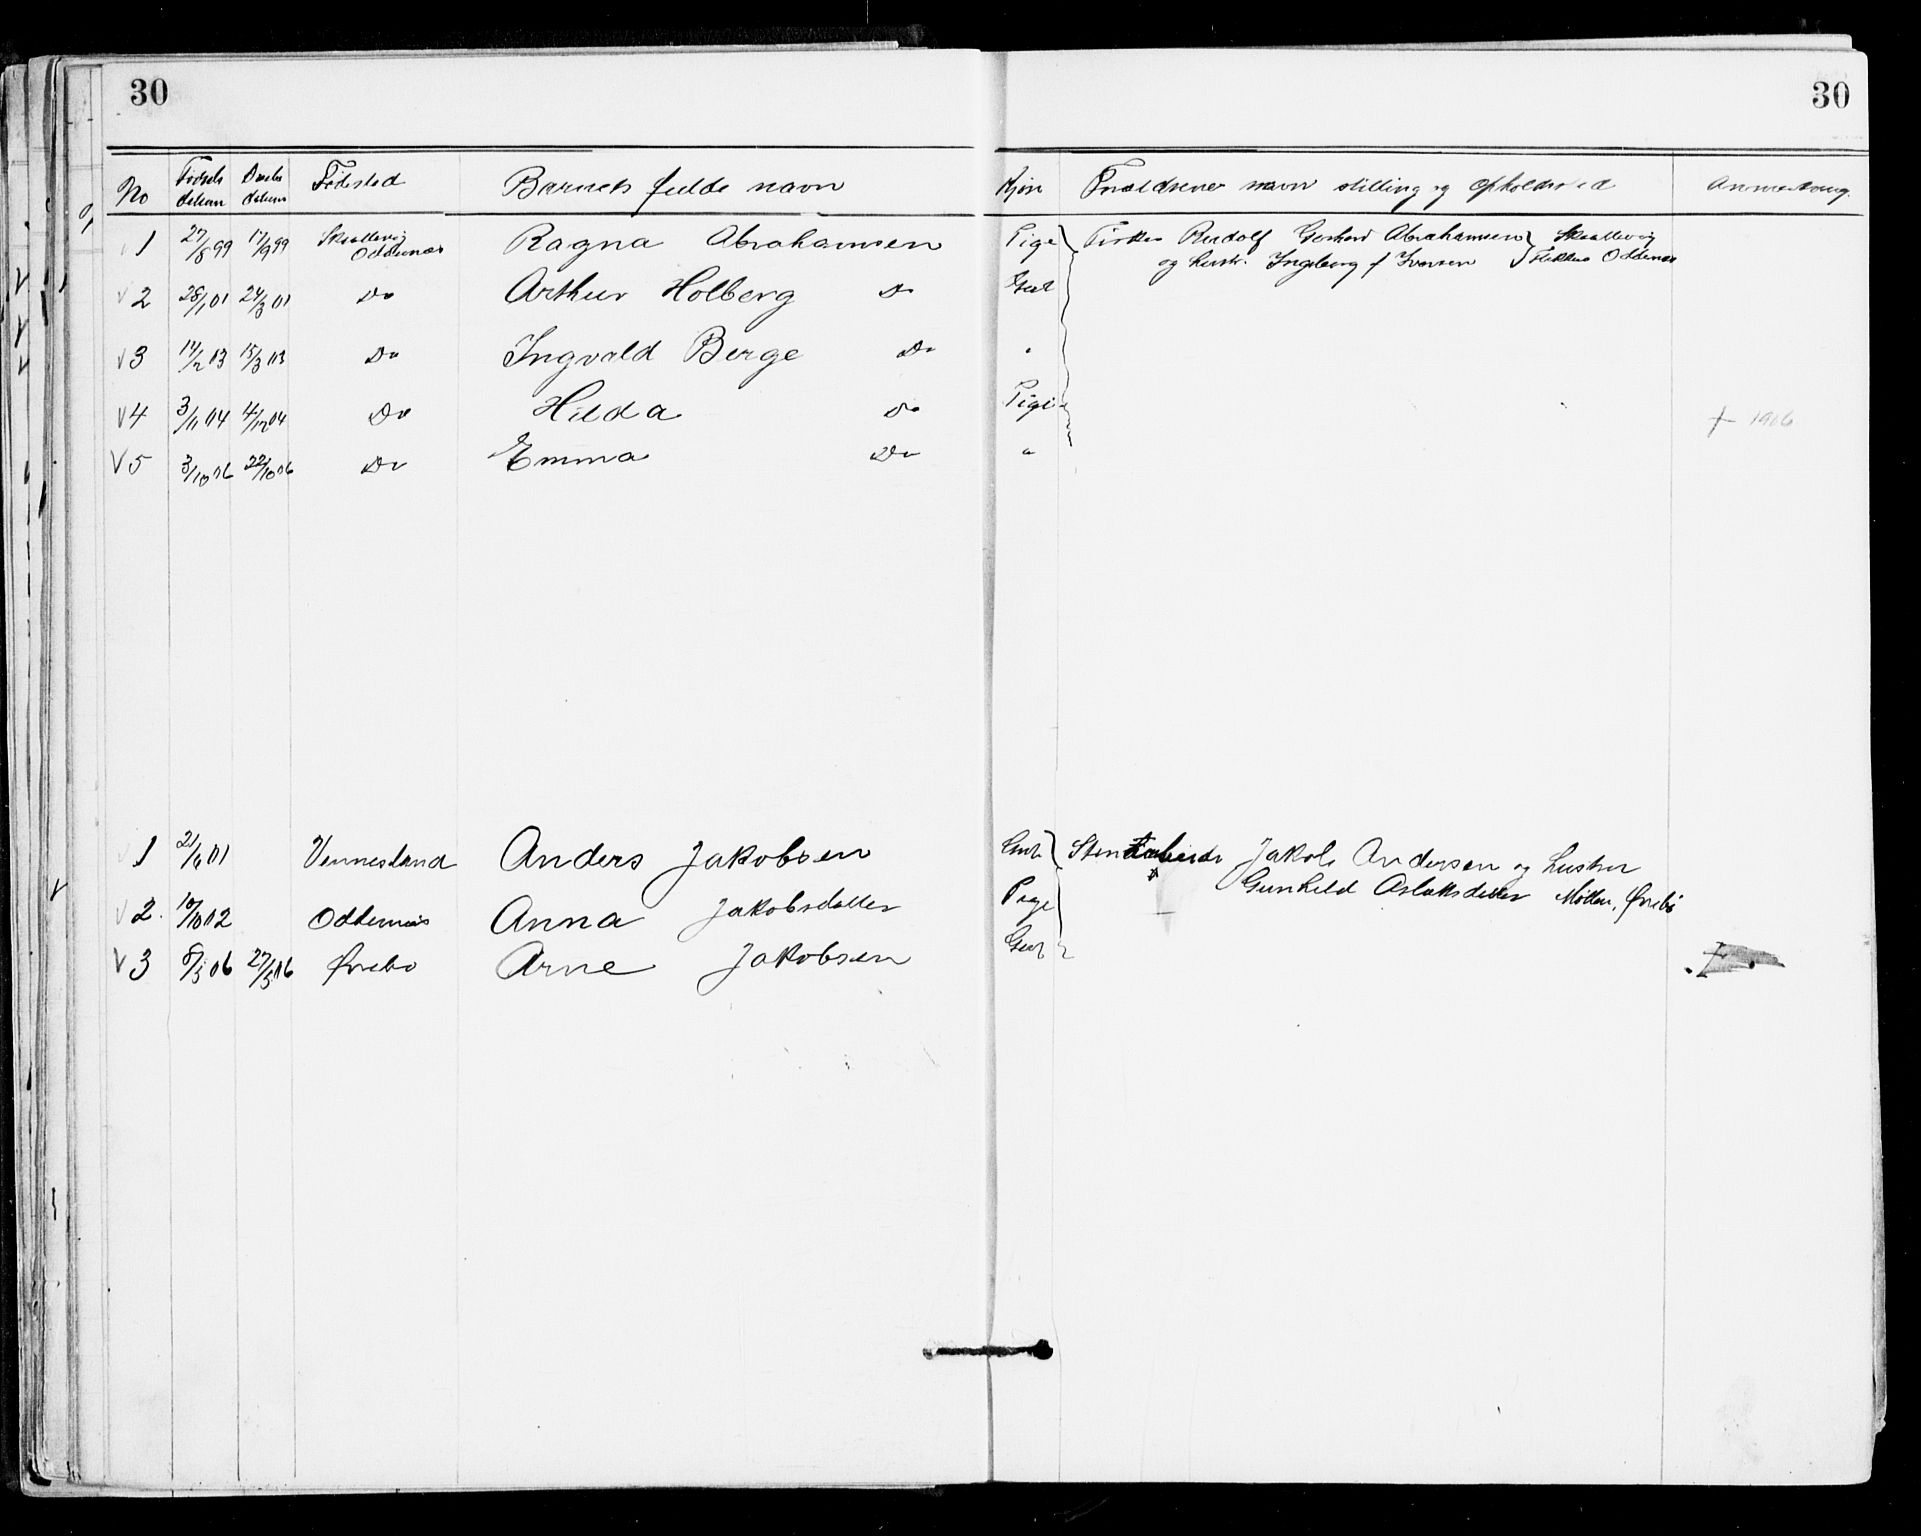 30 30
No Fødsels datum Daabs datum Fødested Barnets fulde navn Kjøn Forældrenes navn stilling og opholdssted Anmerkning
1 27/8 99 17/9 99 Skaallevig Oddernæs Ragna Abrahamsen Pige Fisker Rudolf Gerhard Abrahamsen Skaallevig
og hustr. Ingeborg f Iversen Flekkerø Oddernæs
v 2 28/1 01 24/3 01 Do Arthur Holberg Do Gut
v 3 14/2 03 15/3 03 Do Ingvald Berge Do "
v 4 3/11 04 4/12 04 Do Hilda Do Pige † 1906
V 5 3/10 06 22/10 06 Do Emma Do "
1 21/6 01 Vennesland Anders Jakobsen Gut Stenarbeider Jakob Andersen og hustru
Gunhild Aslaksdatter Øvrebø
v 2. 10/10 02 Oddernæs Anna Jakobsdatter Pige
V 3 8/3 06 27/5 06 Øvrebø Arne Jakobsen Gut †